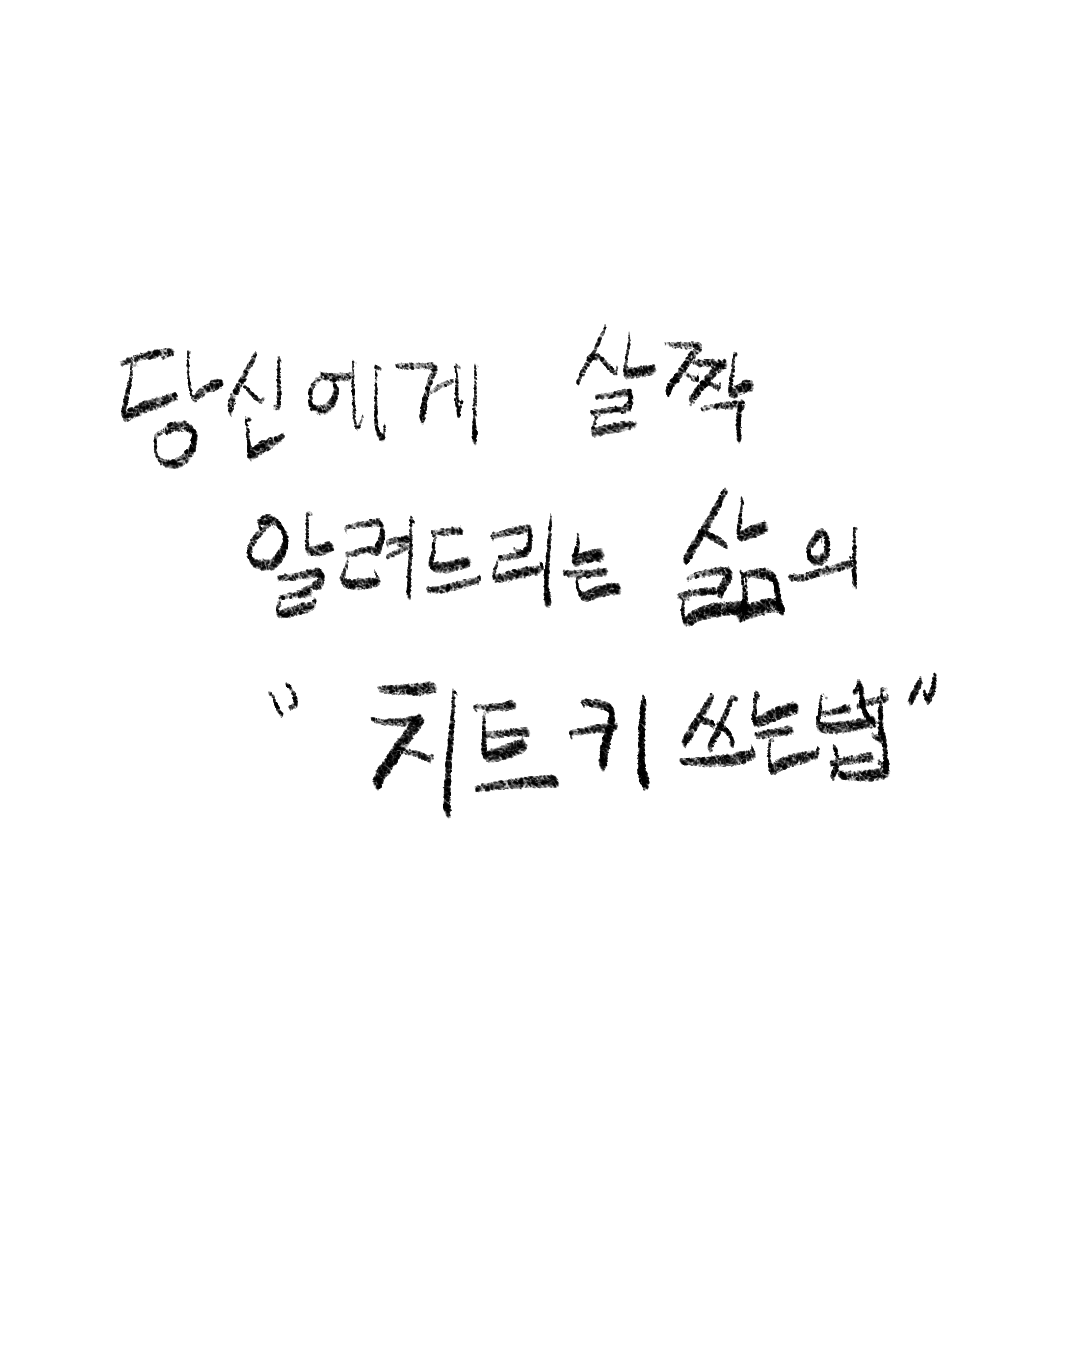 당신에게 살짝
알려드리는 삶의
"치트키 쓰는법"